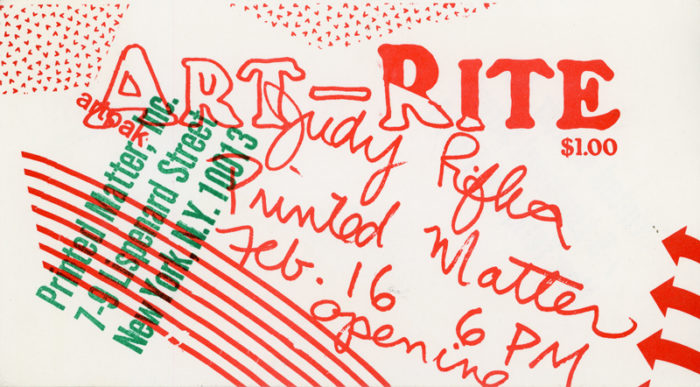 ART-RITE
$1.00
artpak
Printed Matter, Inc.
7-9 Lispenard Street
New York, N.Y. 10013
Judy Rifka
Printed Matter
Feb. 16 6 PM
opening